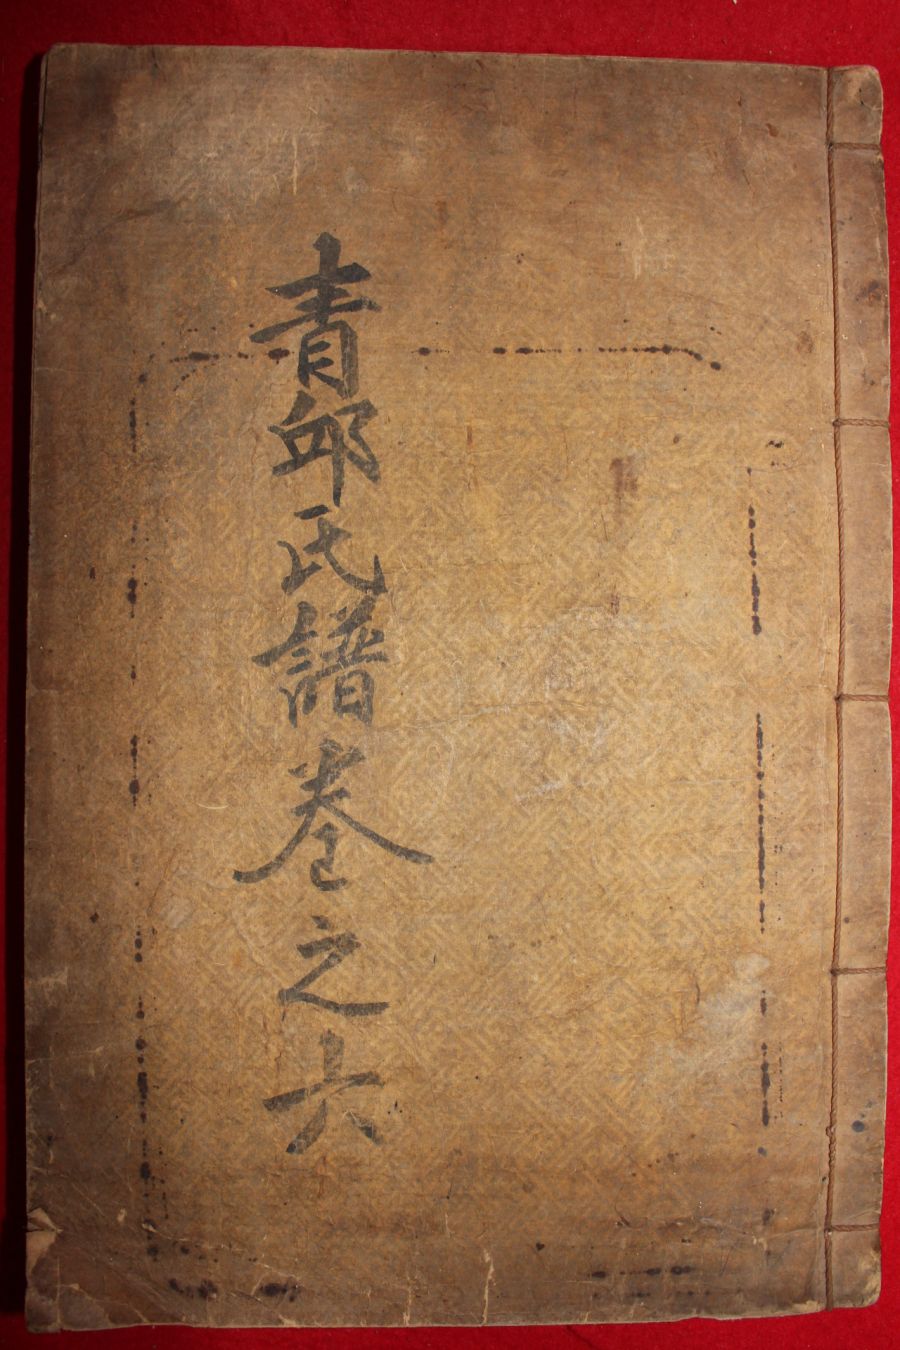 青邱氏譜卷之六